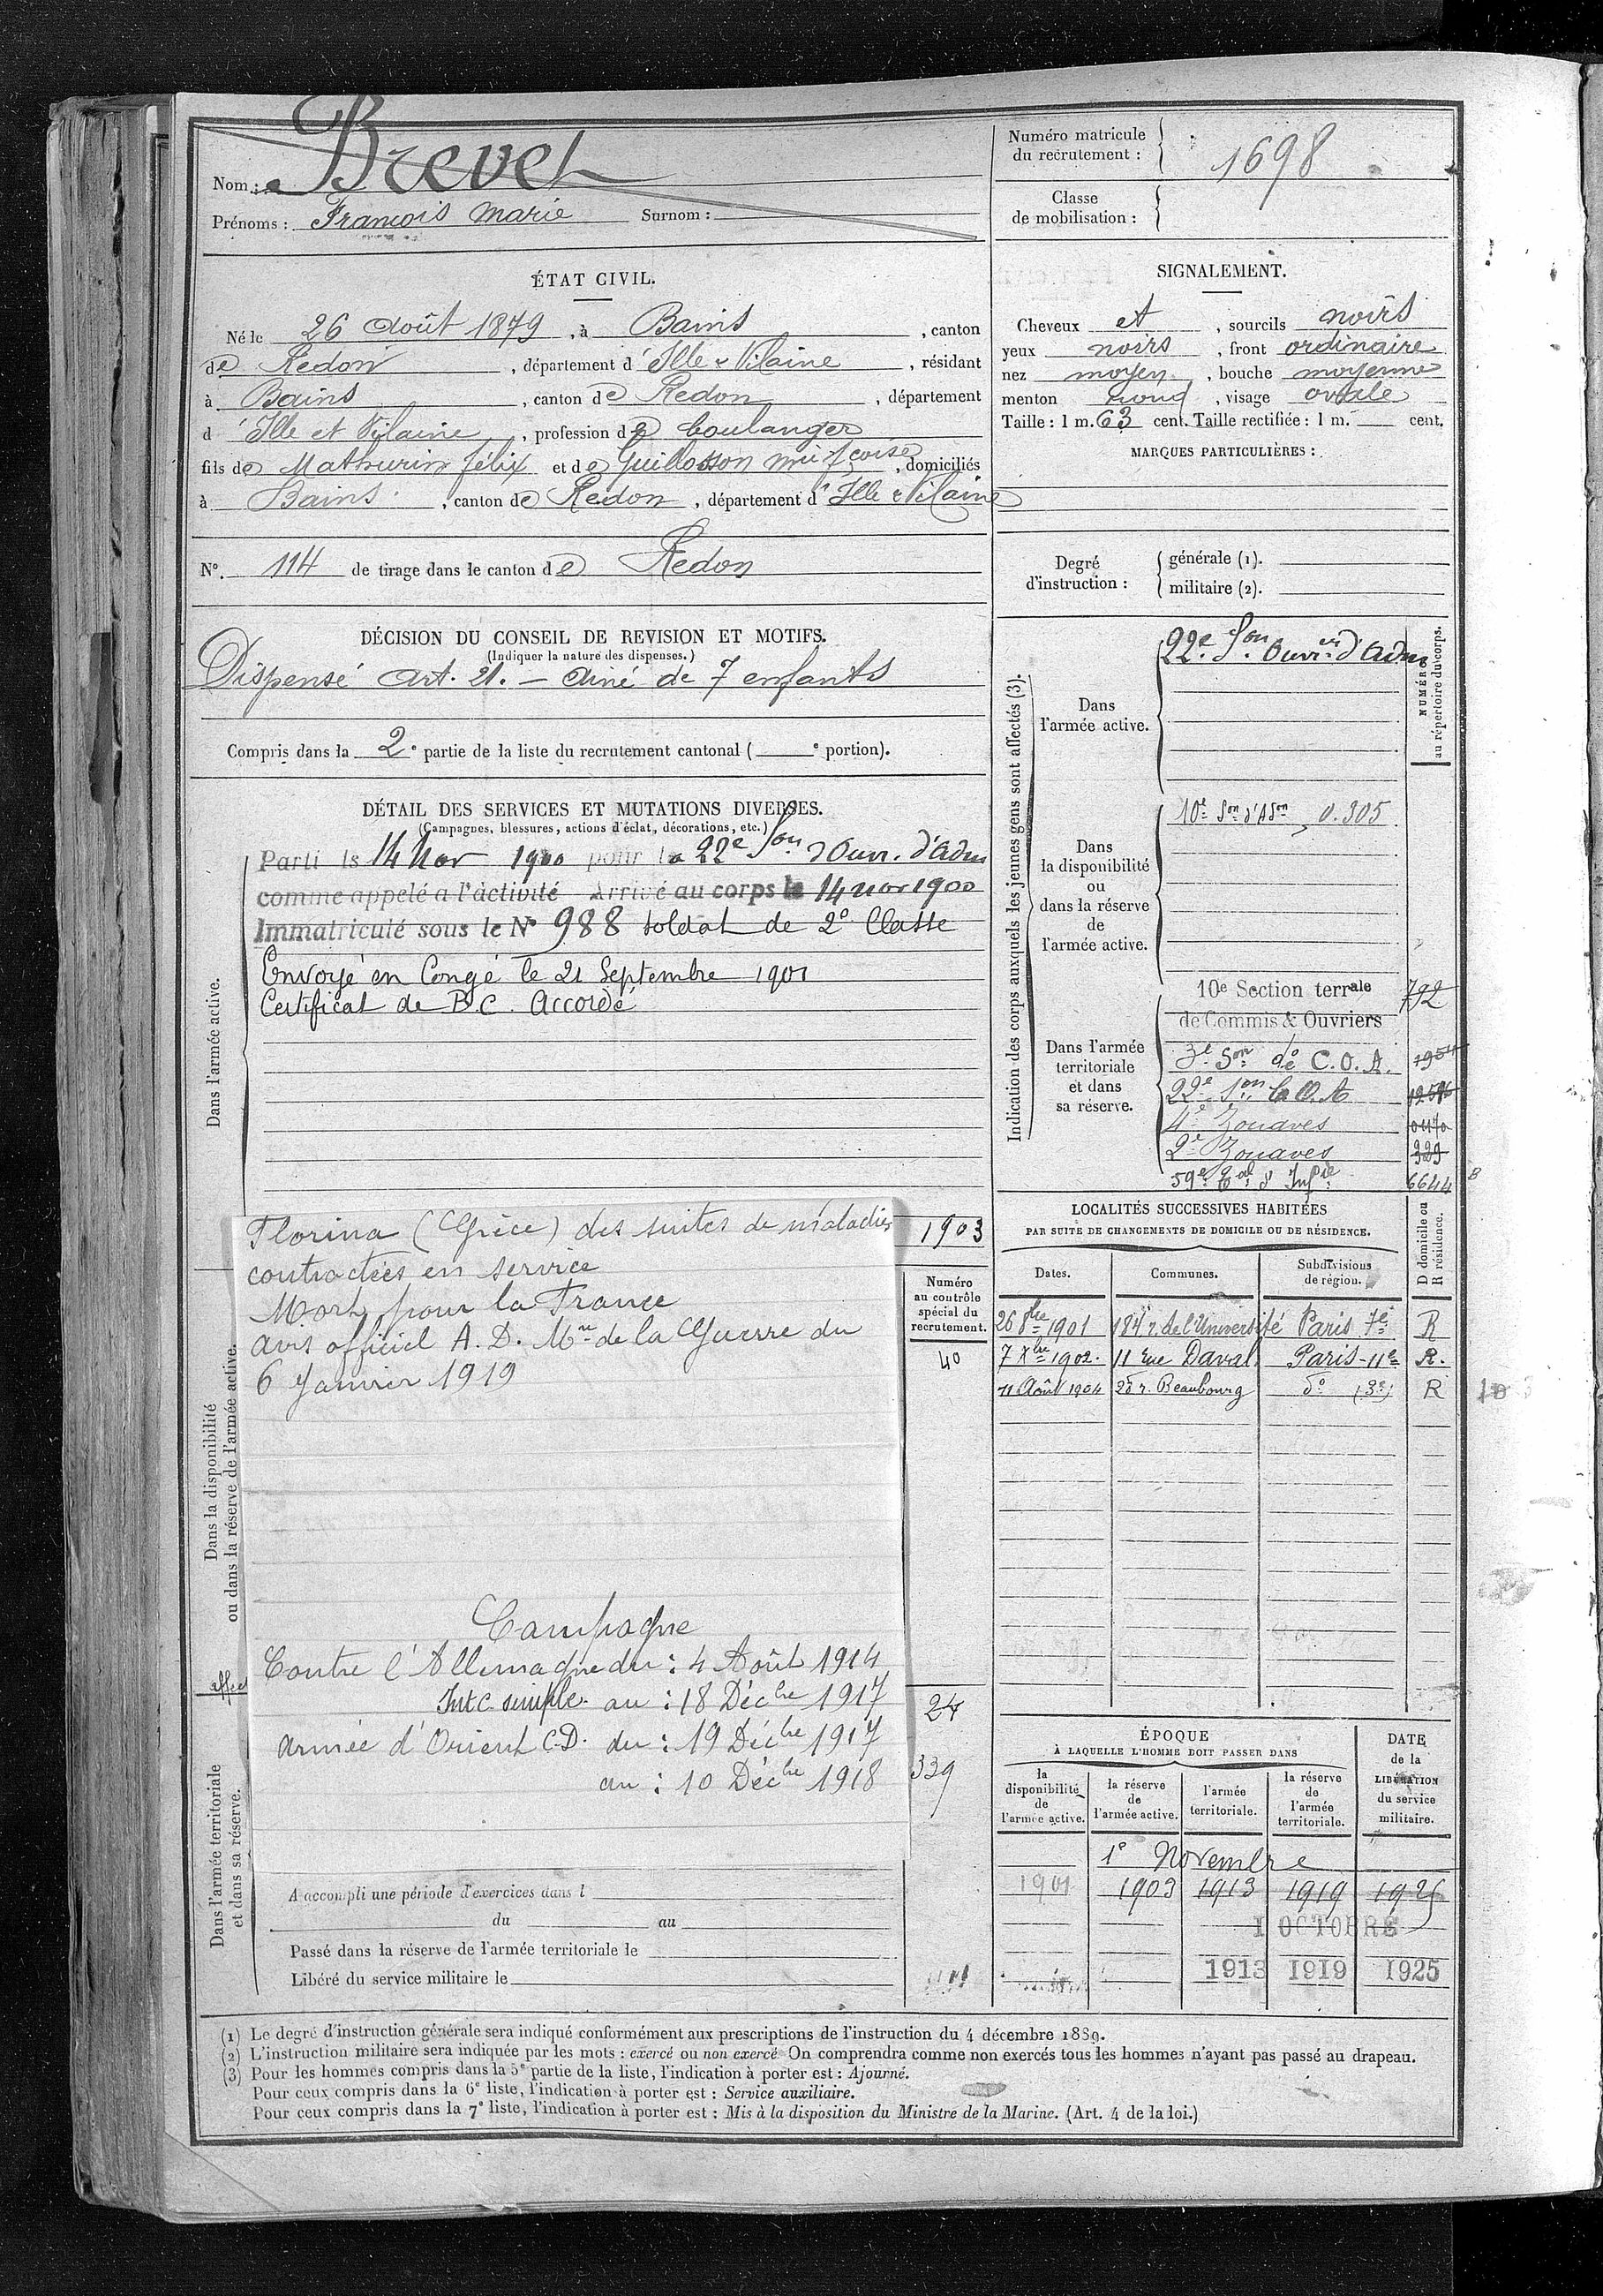 Nom : Brevet
Prénoms : François Marie Surnom :
Numéro matricule du recrutement : 1698
Classe de mobilisation :
ÉTAT CIVIL.
Né le 26 Août 1879, à Bains, canton
de Redon, département d'Ille & Vilaine, résidant
à Bains, canton de Redon, département
d'Ille et Vilaine, profession de boulanger
fils de Mathurin félix et de Guillosson mie fçoise, domiciliés
à Bains, canton de Redon, département d'Ille & Vilaine
N° 114 de tirage dans le canton de Redon
SIGNALEMENT.
Cheveux et, sourcils noirs
yeux noirs, front ordinaire
nez moyen, bouche moyenne
menton rond, visage ovale
Taille : 1 m. 63 cent. Taille rectifiée : 1 m. cent.
MARQUES PARTICULIÈRES :
Degré d'instruction : générale (1).
militaire (2).
DÉCISION DU CONSEIL DE REVISION ET MOTIFS.
(Indiquer la nature des dispenses.)
Dispensé Art. 21. — Ainé de 7 enfants
Compris dans la 2e partie de la liste du recrutement cantonal ( e portion).
DÉTAIL DES SERVICES ET MUTATIONS DIVERSES.
(Campagnes, blessures, actions d'éclat, décorations, etc.)
Dans l'armée active.
Parti le 14 Nov 1900 pour la 22e Son d'Ouv. d'Adm
comme appelé a l'activité Arrivé au corps le 14 nov 1900
Immatriculé sous le N° 988 soldat de 2e Classe
Envoyé en Congé le 21 Septembre 1901
Certificat de B.C. Accordé
1903
Dans la disponibilité
ou dans la réserve de l'armée active.
Florina (Grèce) des suites de maladies
contractées en service
Mort pour la France
avis officiel A. D. Mre de la Guerre du
6 Janvier 1919
Campagne
Contre l'Allemagne du : 4 Août 1914
Intc simple au : 18 Décbre 1917
armée d'Orient C.D. du : 19 Décbre 1917
au : 10 Décbre 1918
Numéro
au contrôle
spécial du
recrutement.
40
24
339
affec
Dans l'armée territoriale
et dans sa réserve.
A accompli une période d'exercices dans l
du au
Passé dans la réserve de l'armée territoriale le
Libéré du service militaire le
Indication des corps auxquels les jeunes gens sont affectés (3).
NUMÉRO
au répertoire du corps.
Dans l'armée active.
22e Son Ouvrs d'Adm
Dans la disponibilité ou dans la réserve de l'armée active.
10e Son d'ASon 0.305
Dans l'armée territoriale et dans sa réserve.
10e Section terrale 792
de Commis & Ouvriers
3e Son de C.O.A.
22e Son C.O.A
4e Zouaves
2e Zouaves
59e Bat d'Infie 6644
LOCALITÉS SUCCESSIVES HABITÉES
PAR SUITE DE CHANGEMENTS DE DOMICILE OU DE RÉSIDENCE.
Dates. Communes. Subdivisions de région. D domicile ou R résidence.
26 8bre 1901 184 r. de l'Université Paris 7e R
7 Xbre 1902. 11 rue Daval Paris-11e R.
11 Août 1904 20 r. Beaubourg do (3e) R
ÉPOQUE
À LAQUELLE L'HOMME DOIT PASSER DANS
la disponibilité de l'armée active.
la réserve de l'armée active.
l'armée territoriale.
la réserve de l'armée territoriale.
DATE de la LIBÉRATION du service militaire.
1e Novembre
1901 1903 1913 1919 1925
1 OCTOBRE
1913 1919 1925
(1) Le degré d'instruction générale sera indiqué conformément aux prescriptions de l'instruction du 4 décembre 1889.
(2) L'instruction militaire sera indiquée par les mots : exercé ou non exercé On comprendra comme non exercés tous les hommes n'ayant pas passé au drapeau.
(3) Pour les hommes compris dans la 5e partie de la liste, l'indication à porter est : Ajourné.
Pour ceux compris dans la 6e liste, l'indication à porter est : Service auxiliaire.
Pour ceux compris dans la 7e liste, l'indication à porter est : Mis à la disposition du Ministre de la Marine. (Art. 4 de la loi.)